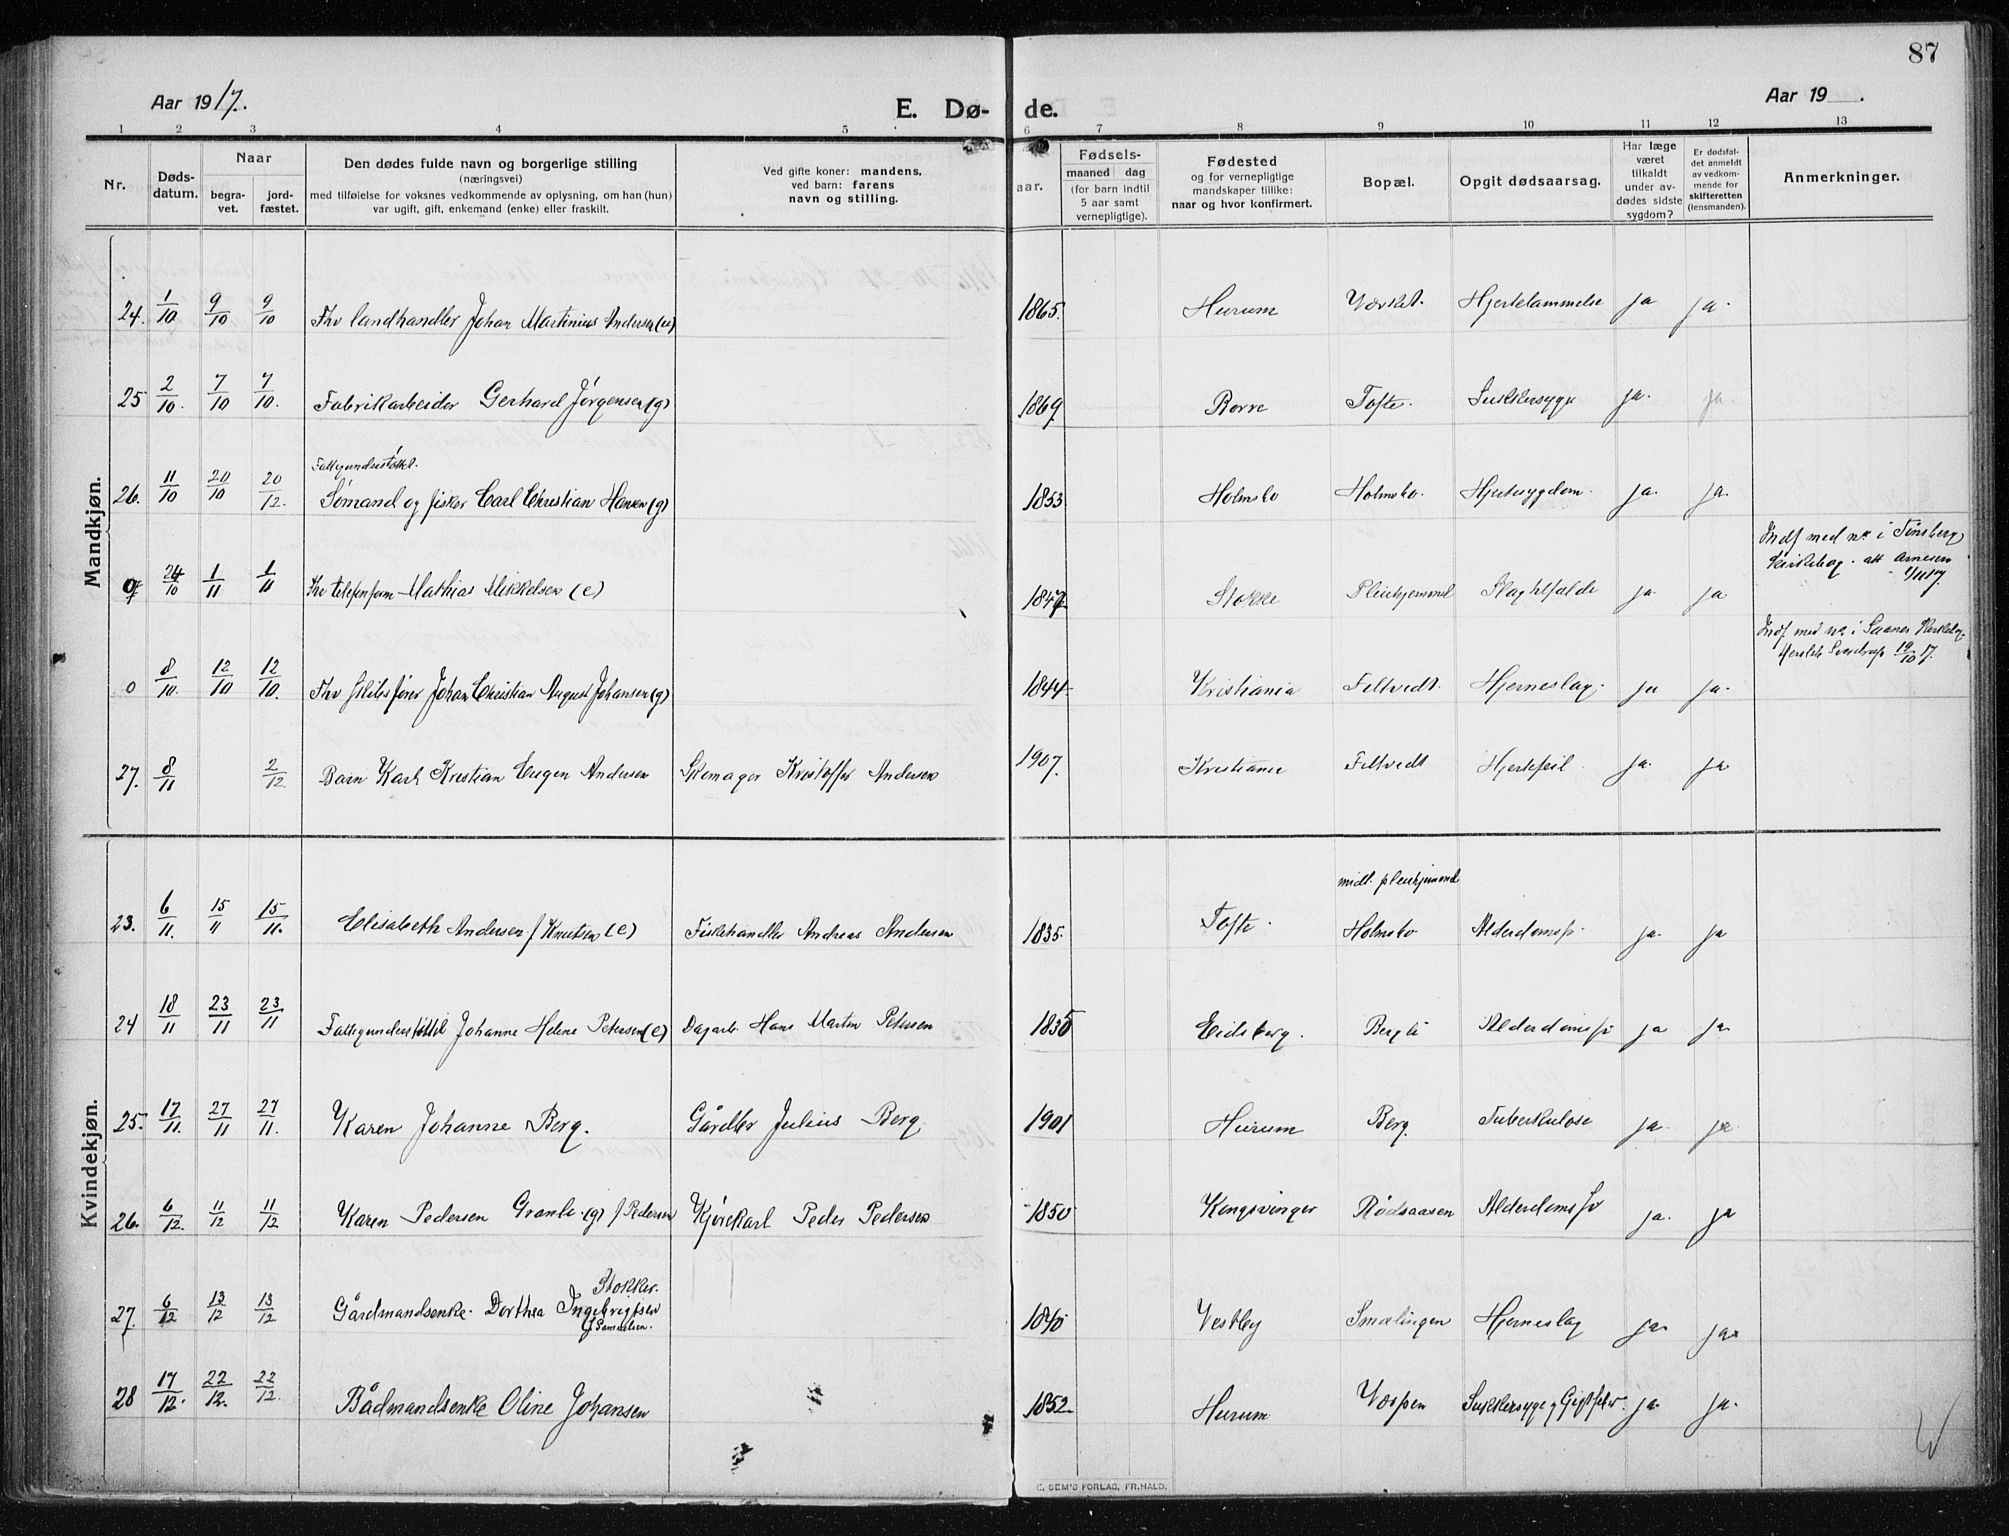 87
Aar 1917.
E. Dø-
de.
Aar 19 .
1 2 3 4 5 6 7 8 9 10 11 12 13
Nr.
Døds-
datum.
Naar
begra-
vet.
jord-
fæstet.
Den dødes fulde navn og borgerlige stilling
(næringsvei)
med tilføielse for voksnes vedkommende av oplysning, om han (hun)
var ugift, gift, enkemand (enke) eller fraskilt.
Ved gifte koner: mandens,
ved barn: farens
navn og stilling.
aar.
Fødsels-
maaned dag
(for barn indtil
5 aar samt
vernepligtige).
Fødested
og for vernepligtige
mandskaper tillike:
naar og hvor konfirmert.
Bopæl.
Opgit dødsaarsag.
Har læge
været
tilkaldt
under av-
dødes sidste
sygdom?
Er dødsfal-
det anmeldt
av vedkom-
mende for
skifteretten
(lensmanden).
Anmerkninger.
Mandkjøn.
24. 1/10 9/10 9/10 Fhv landhandler Johan Martinius Andersen (e) 1865. Hurum Værket. Hjertelammelse ja ja.
25 2/10. 7/10 7/10. Fabrikarbeider Gerhard Jørgensen (g) 1869 Borre Tofte. Sukkersyge ja. ja.
Fattigunderstøttet.
26. 11/10 20/10 20/12. Sømand og fisker Carl Christian Hansen (g) 1853 Holmsbo Holmsbo. Hjertesygdom. ja. ja.
Indf med nr i Tønsberg
Kirkebog. att Arnesen
1/11 17
0 24/10 1/11 1/11 Fhv Mathias Mikkelsen (e) 1847 Stokke Pleiehjemmet Slagtilfælde ja. ja
Indf med nr i Saaner Kirkebog
Sverdrup 19/10 17.
0 8/10. 12/10 12/10. Fhv Johan Christian August Johansen (g) 1844 Kristiania Feltvedt. Hjerneslag. ja ja.
27. 8/11 2/12. Barn Karl Kristian Eugen Andersen Skomager Kristoffer Andersen 1907. Kristiania Feltvedt Hjertefeil ja. ja
Kvindekjøn.
midl. pleiehjemmet
23. 6/11. 15/11 15/11. Elisabeth Andersen f Knutsen (e) Fiskehandler Andreas Andersen 1835. Tofte. Holmsbo Alderdomssv. ja. ja
24 18/11 23/11 23/11 Fattigunderstøttet Johanne Helene Petersen (e) Dagarb. Hans Martin Petersen 1835 Eidsberg. Bergli Alderdomssv ja ja.
25. 17/11. 27/11 27/11. Karen Johanne Berg. Gårdbr Julius Berg. 1901 Hurum Berg. Tuberkulose ja. ja.
26. 6/12. 11/12 11/12 Karen Pedersen Granli. (g) f Pedersen Kjørekarl Peder Pedersen 1850 Kongsvinger Rødsaasen Alderdomssv ja. ja
Stokker.
27. 6/12 13/12 13/12 Gårdmandsenke. Dorthea Ingebrigtsen 1840 Vestby Smælingen Hjerneslag ja. ja.
f Samuelsen.
28 17/12. 22/12. 22/12. Bådmandsenke Oline Johansen 1852. Hurum Væspen Sukkersyge og Gigtfeber. ja. ja.
E. SEM'S FORLAG, FR.HALD.